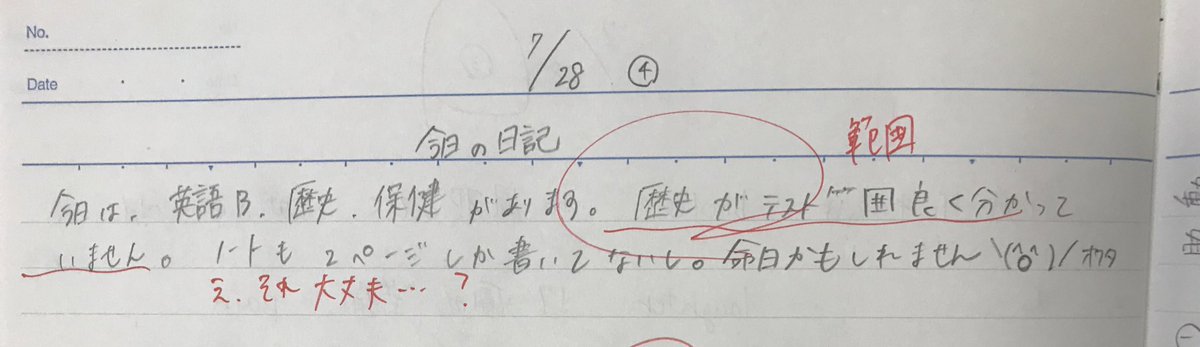 No.
Date
7/28 ④
今日の日記
範囲
今日は、英語B、歴史、保健があります。歴史がテスト囲良く分かって
いません。ノートも2ページしか書いてないし。命日かもしれません\(^o^)/オワタ
え、それ大丈夫…?
助動
①